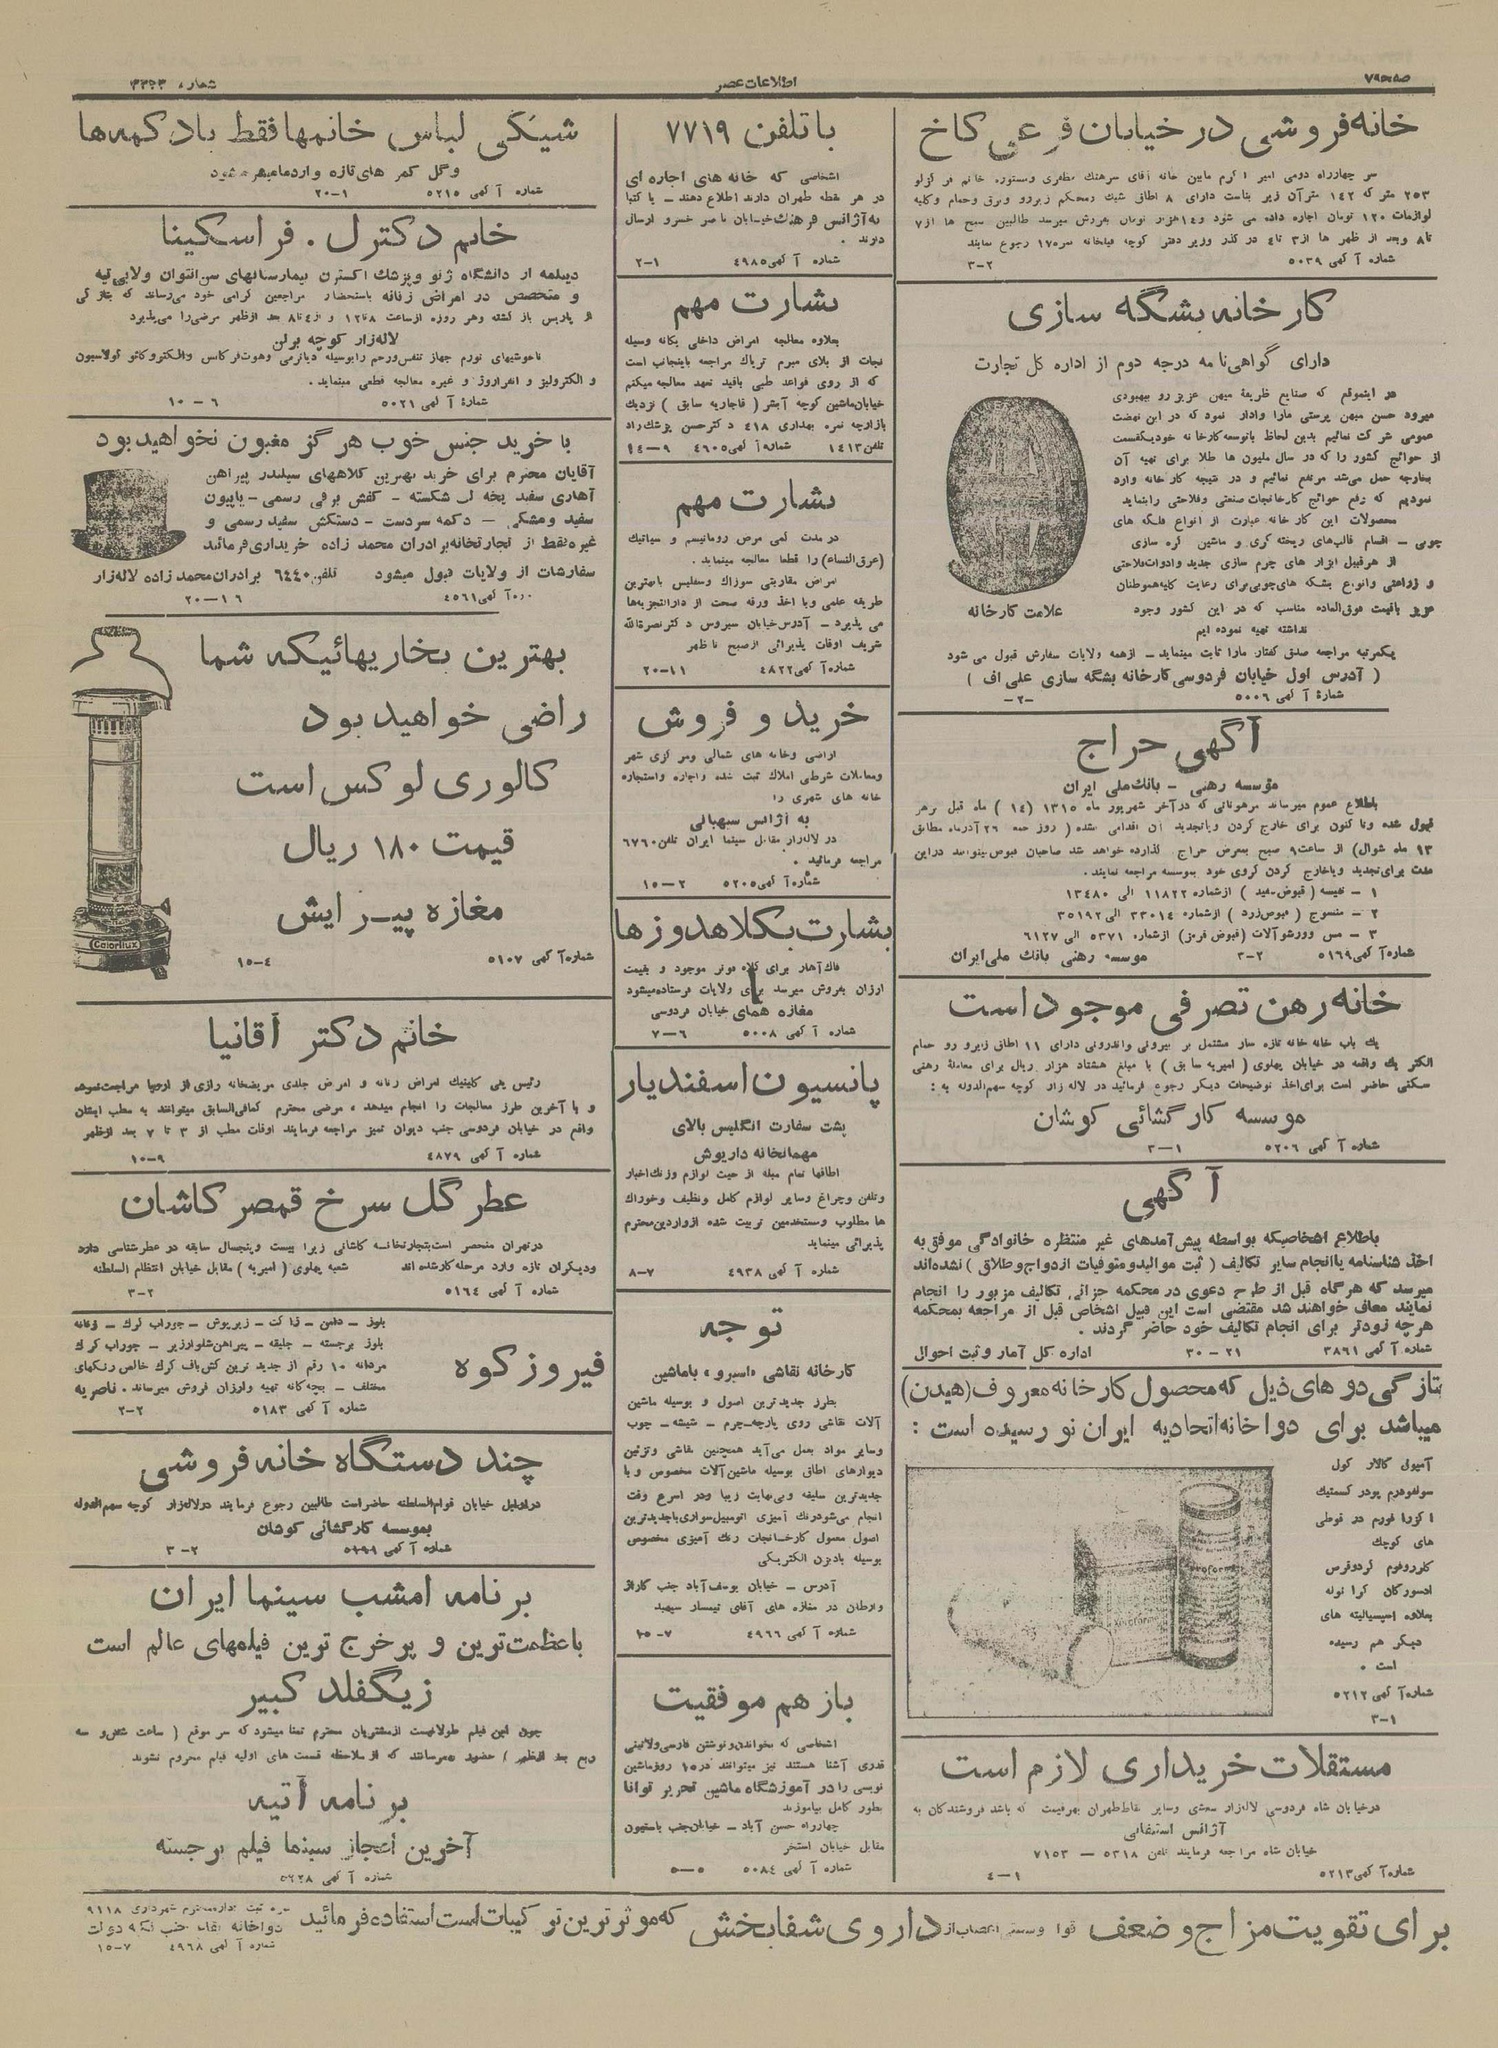 اطلاعات عصر
خانه فروشی در خیابان فرعی کاخ
سر چهارراه دومی امیر اکرم مابین خانه آقای سرهنگ مظفری و مستوره خانم هر کزلو
۲۵۳ متر که ۱۴۲ متر آن زیر بناست دارای ۸ اطاق شیک و محکم زیر و رو و برق و حمام و کلیه
لوازمات ۱۲۰ تومان اجاره داده می شود و ۱۴ هزار تومان بفروش میرسد طالبین صبح ها از ۷
تا ۸ و بعد از ظهر ها از ۳ تا ٤ در گذر وزیر دفتر کوچه فیلخانه نمره ۱۷ رجوع نمایند
شماره آ گهی ۵۰۳۹ ۲-۳
کارخانه بشگه سازی
دارای گواهی نامه درجه دوم از اداره کل تجارت
در اینموقع که صنایع ظریفهٔ میهن عزیز رو ببهبودی
میرود حسن میهن پرستی مارا وادار نمود که در این نهضت
عمومی شرکت نمائیم بدین لحاظ باتوسعه کارخانه خود یکقسمت
از حوائج کشور را که در سال ملیون ها طلا برای تهیه آن
بخارجه حمل می‌شد مرتفع نمائیم و در نتیجه کارخانه وارد
نمودیم که رفع حوائج کارخانجات صنعتی و فلاحتی را بنماید
محصولات این کارخانه عبارت از انواع فلکه های
چوبی - اقسام قالب‌های ریخته گری و ماشین کره سازی
از هرقبیل ابزار های چرم سازی جدید وادوات فلاحتی
و زراعتی وانواع بشکه های چوبی برای رعایت کلیه هموطنان
عزیز باقیمت فوق‌العاده مناسب که در این کشور وجود
علامت کارخانه
نداشته تهیه نموده ایم
یکمرتبه مراجعه صدق گفتار مارا ثابت مینماید - از همه ولایات سفارش قبول می شود
( آدرس اول خیابان فردوسی کارخانه بشگه سازی علی اف )
شمارهٔ آ گهی ۵۰۰۶ -۲-
آگهی حراج
مؤسسه رهنی - بانک ملی ایران
باطلاع عموم میرساند مرهوناتی که در آخر شهریور ماه ۱۳۱۵ (۱٤) ماه قبل برهر
قبول شده وتا کنون برای خارج کردن ویا تجدید آن اقدامی نشده ( روز جمعه ۲۶ آذرماه مطابق
۱۳ ماه شوال) از ساعت ۹ صبح بمعرض حراج گذارده خواهد شد صاحبان قبوض میتوانند در این
مدت برای تجدید ویا خارج کردن گروی خود بموسسه مراجعه نمایند.
۱ - نفیسه ( قبوض سفید ) از شماره ۱۱۸۲۲ الی ۱۳٤۸۰
۲ - منسوج ( قبوض زرد ) از شماره ۳۳۰۱٤ الی ۳۵۱۹۲
۳ - مس وورشو آلات (قبوض قرمز) از شماره ۵۳۷۱ الی ۶۱۲۷
شماره آ گهی ۵۱۶۹ ۲-۳ موسسه رهنی بانک ملی ایران
خانه رهن تصرفی موجود است
یک باب خانه خانه تازه ساز مشتمل بر بیرونی واندرونی دارای ۱۱ اطاق زیر و رو حمام
الکتریک واقعه در خیابان پهلوی (امیریه سابق) با مبلغ هشتاد هزار ریال برای معاملهٔ رهنی
سکنی حاضر است برای اخذ توضیحات دیگر رجوع فرمائید در لاله زار کوچه سهم‌الدوله به :
موسسه کار گشائی کوشان
شماره آ گهی ۵۲۰۶ ۱-۳
آگهی
باطلاع اشخاصیکه بواسطه پیش آمدهای غیر منتظره خانوادگی موفق به
اخذ شناسنامه یا انجام سایر تکالیف ( ثبت موالید و متوفیات ازدواج و طلاق ) نشده‌اند
میرسد که هرگاه قبل از طرح دعوی در محکمه جزائی تکالیف مزبور را انجام
نمایند معاف خواهند شد مقتضی است این قبیل اشخاص قبل از مراجعه بمحکمه
هرچه زودتر برای انجام تکالیف خود حاضر گردند .
شماره آ گهی ۳۸۹۱ ۲۱-۳۰ اداره کل آمار و ثبت احوال
بتازگی دو های ذیل که محصول کارخانه معروف (هیدن)
میباشد برای دواخانه اتحادیه ایران نو رسیده است :
آمپول کالار کول
سولفودرم پودر کسمتیک
اکزرا فورم در قوطی
های کوچک
کلروفرم لردوفرس
ادسورگان گرا نوله
بعلاوه اسپسیالیته های
دیگر هم رسیده
است .
شماره آ گهی ۵۲۱۲
۱-۳
مستقلات خریداری لازم است
در خیابان شاه فردوسی لاله‌زار سعدی وسایر نقاط طهران بهرقیمت که باشد فروشندگان به
آژانس استیفائی
خیابان شاه مراجعه فرمایند تلفن ۵۳۱۸ - ۷۱۵۳
شماره آ گهی ۵۲۱۳ ۱-٤
با تلفن ۷۷۱۹
اشخاصی که خانه های اجاره ای
در هر نقطه طهران دارند اطلاع دهند - یا کتبا
به آژانس فرهنگ خیابان ناصر خسرو ارسال
دارند .
شماره آ گهی ٤۹۸۵ ۱-۲
بشارت مهم
بعلاوه معالجه امراض داخلی یگانه وسیله
نجات از بلای مبرم تریاک مراجعه باینجانب است
که از روی قواعد طبی باقید تعهد معالجه میکنم
خیابان ماشین کوچه آبشر ( قاجاریه سابق ) نزدیک
بازارچه نمره بهداری ٤۱۸ دکتر حسن پزشک راد
تلفن ۱٤۱۳ شماره آ گهی ٤۶۰۵ ۹-۱٤
بشارت مهم
در مدت کمی مرض روماتیسم و سیاتیک
(عرق النساء) را قطعا معالجه مینماید .
امراض مقاربتی سوزاک وسفلیس بابهترین
طریقه علمی ویا اخذ ورقه صحت از دارالتجزیه‌ها
می پذیرد - آدرس خیابان سیروس دکتر نصرة‌الله
شریف اوقات پذیرائی از صبح تا ظهر
شماره آ گهی ٤۸۲۲ ۱۱-۲۰
خرید و فروش
اراضی وخانه های شمالی ومرکزی شهر
ومعاملات شرطی املاک ثبت شده واجاره واستجاره
خانه های شهری را
به آژانس سبهبالی
در لاله‌زار مقابل سینما ایران تلفن ۶۷۶۰
مراجعه فرمائید .
شماره آ گهی ۵۲۰۵ ۲-۱۰
بشارت بکلاهدوزها
فاک آهار برای کلاه موتر موجود و بقیمت
ارزان بفروش میرسد برای ولایات فرستاده میشود
مغازه همای خیابان فردوسی
شماره آ گهی ۵۰۰۸ ۶-۷
پانسیون اسفندیار
پشت سفارت انگلیس بالای
مهمانخانه داریوش
اطاقها تمام مبله از حیث لوازم وزنگ اخبار
وتلفن وچراغ وسایر لوازم کامل ونظیف وخوراک
ها مطلوب ومستخدمین تربیت شده از واردین محترم
پذیرائی مینماید
شماره آ گهی ٤۹۳۸ ۷-۸
توجه
کارخانه نقاشی «اسپرو» باماشین
بطرز جدیدترین اصول و بوسیله ماشین
آلات نقاشی روی پارچه-چرم - شیشه - چوب
وسایر مواد بعمل می‌آید همچنین نقاشی وتزئین
دیوارهای اطاق بوسیله ماشین آلات مخصوص وبا
جدیدترین سلیقه وبی‌نهایت زیبا ودر اسرع وقت
انجام می‌شود رنگ آمیزی اتومبیل سواری باجدیدترین
اصول معمول کارخانجات رنگ آمیزی مخصوص
بوسیله بادبزن الکتریکی
آدرس - خیابان یوسف آباد جنب گاراژ
وارطان در مغازه های آقای تیمسار سپهبد
شماره آ گهی ٤۹۶۶ ۷-۱۵
باز هم موفقیت
اشخاصی که بخواندن ونوشتن فارسی ولاتینی
قدری آشنا هستند نیز میتوانند در ۱۵ روز ماشین
نویسی را در آموزشگاه ماشین تحریر توانا
بطور کامل بیاموزند
چهارراه حسن آباد - خیابان جنب باستیون
مقابل خیابان استخر
شماره آ گهی ۵۰۸٤ ۵-۵
شیکی لباس خانمها فقط باد کمه‌ها
و گل کمر های تازه وارد ما میسر میشود
شماره آ گهی ۵۲۱۵ ۱-۲۰
خانم دکتر ل . فراسکینا
دیپلمه از دانشگاه ژنو و پزشک اکسترن بیمارستانهای سن‌آنتوان ولابی‌تیه
و متخصص در امراض زنانه باستحضار مراجعین گرامی خود می‌رساند که بتازگی
از پاریس باز گشته وهر روزه از ساعت ۸ تا ۱۲ و از ٤ تا ۸ بعد از ظهر مرضی را می‌پذیرد
لاله‌زار کوچه برلن
ناخوشیهای تورم جهاز تنفس ورحم را بوسیله دیاترمی وهوت‌فرکانس والکتروکائو گولاسیون
و الکترولیز و انفراروژ و غیره معالجه قطعی مینماید .
شمارهٔ آ گهی ۵۰۲۱ ۶-۱۰
با خرید جنس خوب هرگز مغبون نخواهید بود
آقایان محترم برای خرید بهترین کلاههای سیلندر پیراهن
آهاری سفید یخه لب شکسته - کفش برقی رسمی - پاپیون
سفید ومشکی - دکمه سردست - دستکش سفید رسمی و
غیره فقط از تجارتخانه برادران محمد زاده خریداری فرمائید
سفارشات از ولایات قبول میشود تلفن ۶٤٤۰ برادران محمد زاده لاله‌زار
آ گهی ٤۵۶۱ ۱۶-۲۰
بهترین بخاریهائیکه شما
راضی خواهید بود
کالوری لوکس است
قیمت ۱۸۰ ریال
مغازه پیرایش
Calorilux
شماره آ گهی ۵۱۰۷ ٤-۱۵
خانم دکتر آقانیا
رئیس یقی کلینیک امراض زنانه و امراض جلدی مریضخانه رازی از اروپا مراجعت نموده
و با آخرین طرز معالجات را انجام میدهد ، مرضی محترم کمافی‌السابق میتوانند به مطب ایشان
واقع در خیابان فردوسی جنب دیوان تمیز مراجعه فرمایند اوقات مطب از ۳ تا ۷ بعد از ظهر
شماره آ گهی ٤۸۷۹ ۹-۱۰
عطر گل سرخ قمصر کاشان
در تهران منحصر است بتجارتخانه کاشانی زیرا بیست وپنجسال سابقه در عطرشناسی دارد
ودیگران تازه وارد مرحله کار شده اند شعبه پهلوی ( امیریه ) مقابل خیابان انتظام السلطنه
شماره آ گهی ۵۱۶٤ ۲-۳
فیروزکوه
بلوز - دامن - ژاکت - زیرپوش - جوراب کرک - زنانه
بلوز برجسته - جلیقه - پیراهن شلوار زیر - جوراب کرک
مردانه ۱۰ رقم از جدید ترین کش باف کرک خالص رنگهای
مختلف - بچه‌گانه تهیه وارزان فروش میرساند . ناصریه
شماره آ گهی ۵۱۸۳ ۲-۲
چند دستگاه خانه فروشی
در اوایل خیابان قوام السلطنه حاضر است طالبین رجوع فرمایند در لاله‌زار کوچه سهم الدوله
بموسسه کارگشائی کوشان
شماره آ گهی ۲-۳
برنامه امشب سینما ایران
باعظمت ترین و پر خرج ترین فیلمهای عالم است
زیگفلد کبیر
چون این فیلم طولانیست از مشتریان محترم تمنا میشود که سر موقع ( ساعت شش و سه
ربع بعد از ظهر ) حضور بهمرسانند که از ملاحظه قسمت های اولیه فیلم محروم نشوند
برنامه آتیه
آخرین اعجاز سینما فیلم برجسته
شماره آ گهی ۵۲۲۸
برای تقویت مزاج و ضعف قوا وسستی اعصاب از داروی شفابخش که موثرترین ترکیبات است استفاده فرمائید
نمره ثبت اداره محترم شهرداری ۹۱۱۸
دواخانه دولت
شماره آ گهی ٤۹۶۸ ۷-۱۵